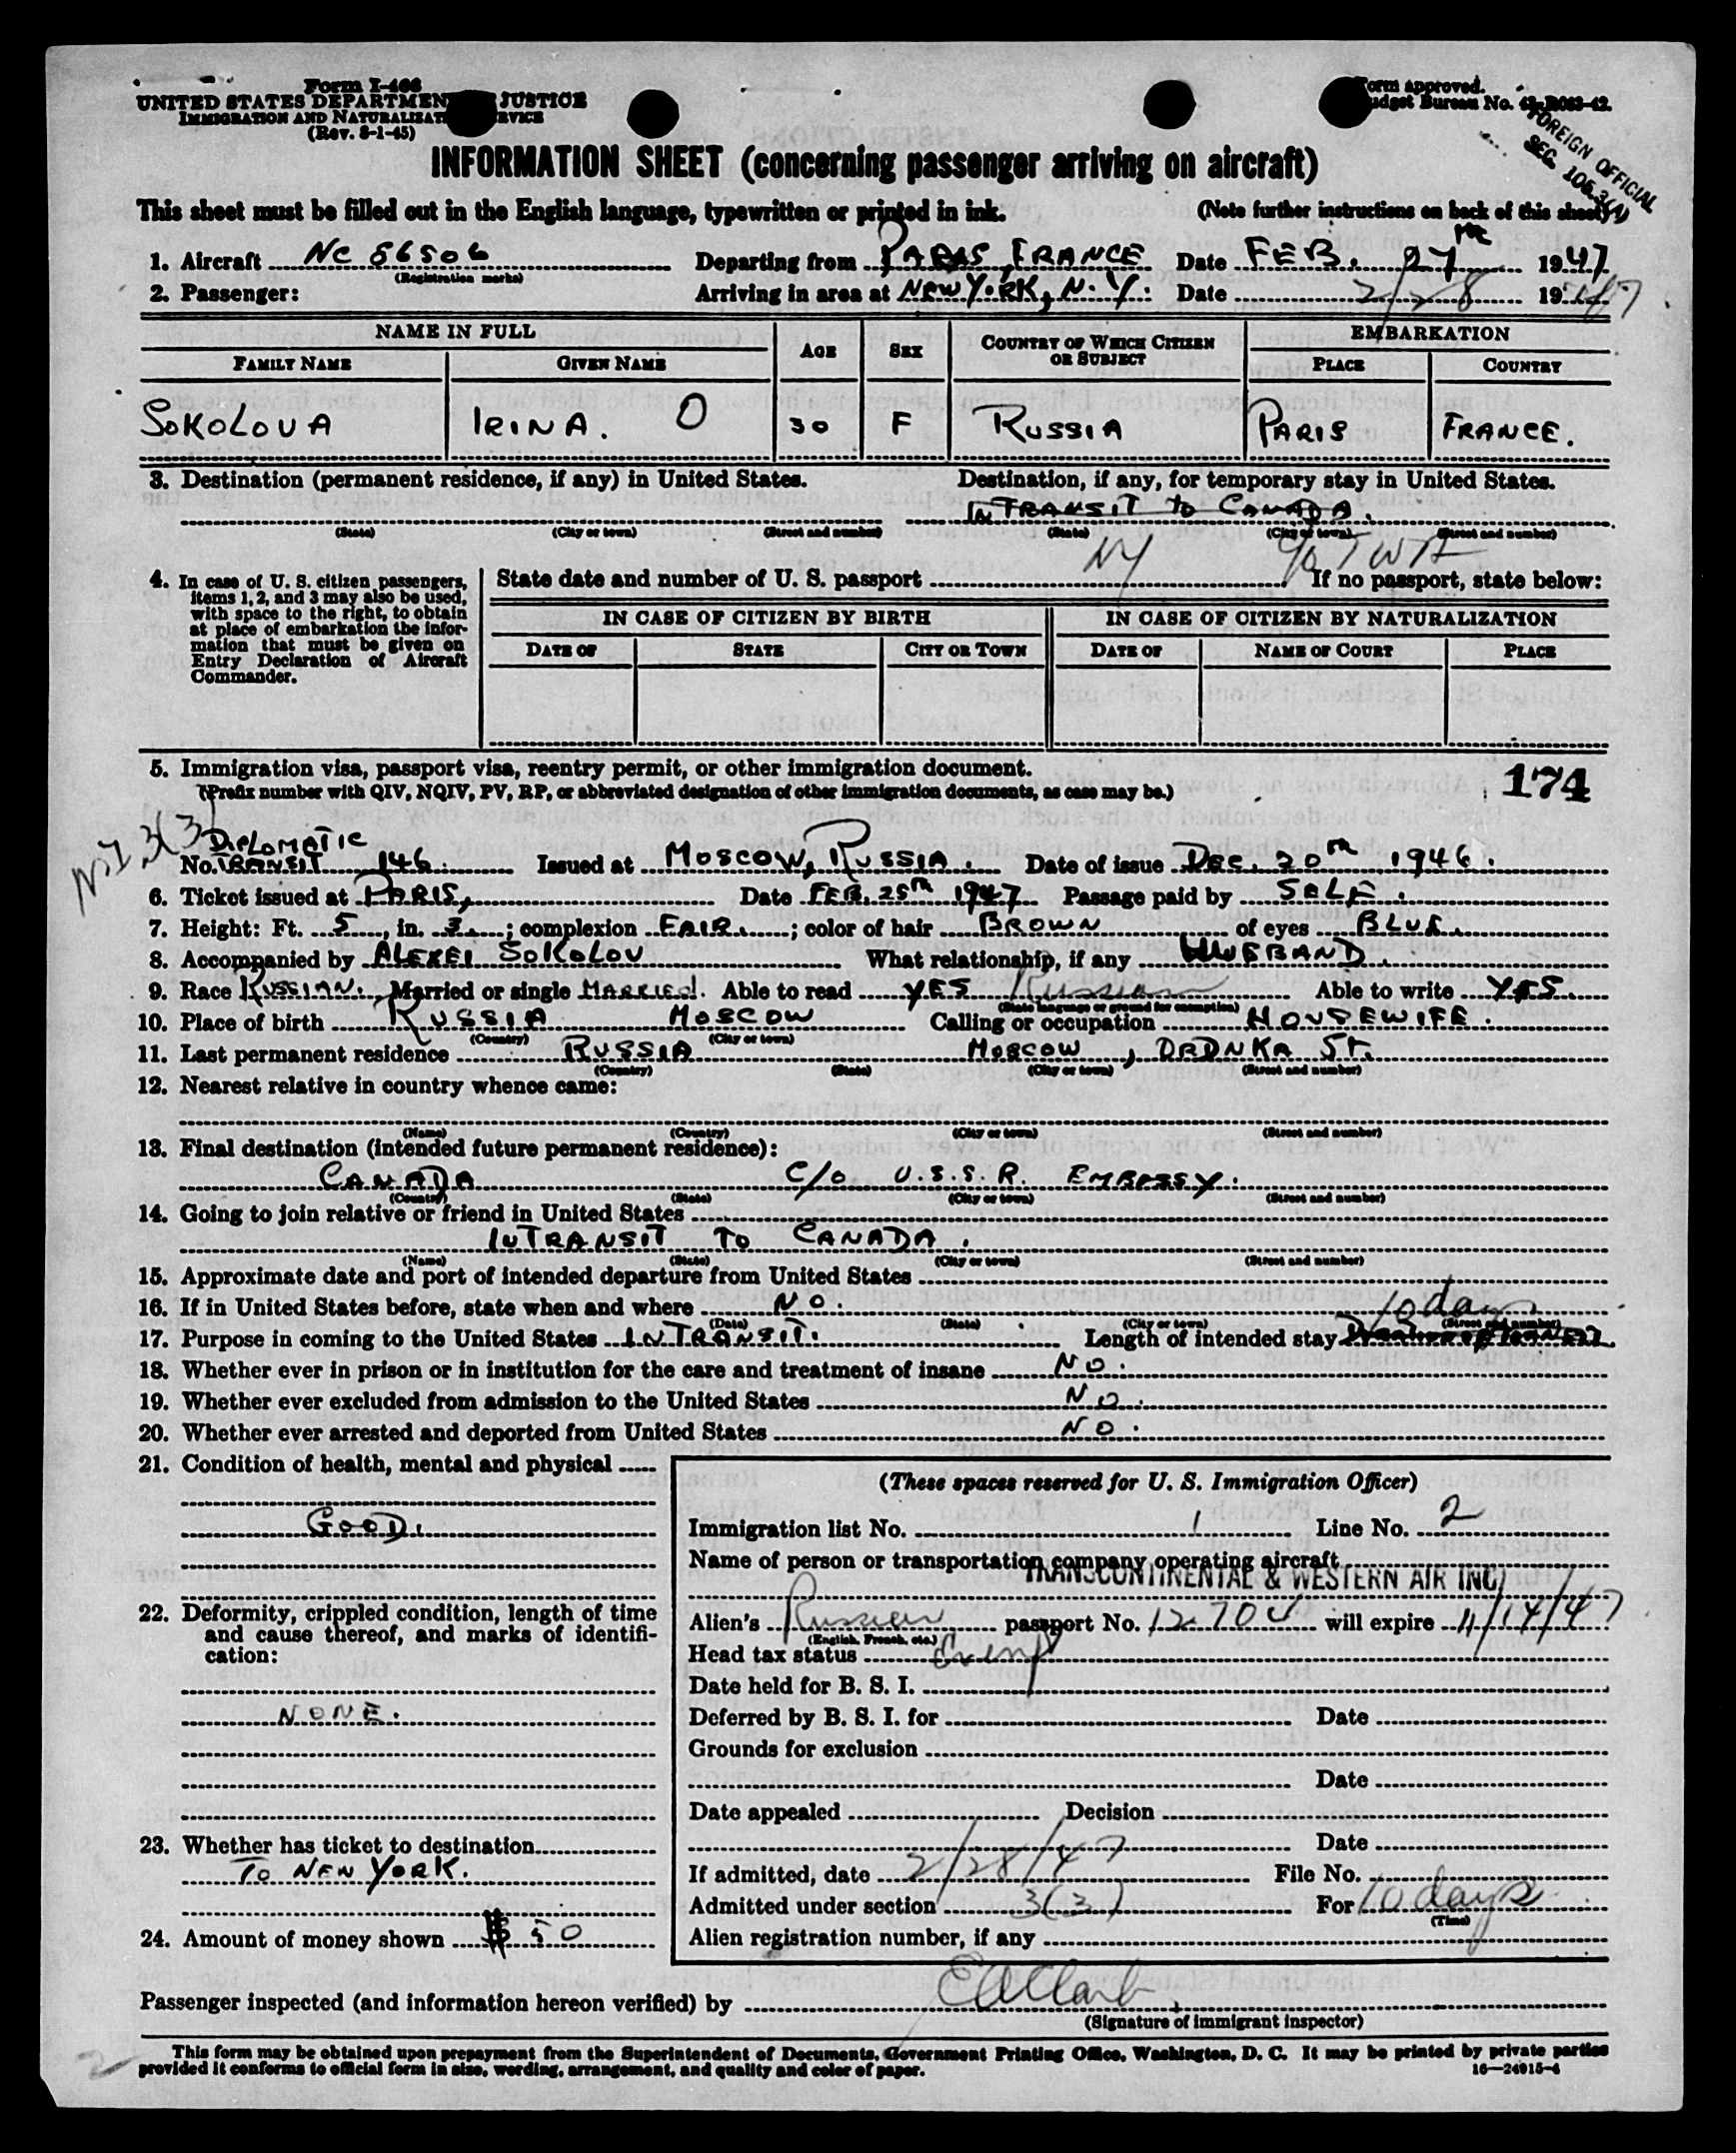 Form I-466
UNITED STATES DEPARTMENT JUSTICE
IMMIGRATION AND NATURALIZAT
(Rev. 8-1-45)
Form approved.
Budget Bureau No. 43-R063-42.
FOREIGN OFFICIAL
SEC. 105.3(1)
INFORMATION SHEET (concerning passenger arriving on aircraft)
This sheet must be filled out in the English language, typewritten or printed in ink. (Note further instructions on back of this sheet)
1. Aircraft NC 86506 Departing from PARIS, FRANCE Date FEB. 27TH 1947
(Registration marks)
2. Passenger: Arriving in area at NEW YORK, N.Y. Date 2/28 1947
NAME IN FULL AGE SEX COUNTRY OF WHICH CITIZEN OR SUBJECT EMBARKATION
FAMILY NAME GIVEN NAME PLACE COUNTRY
SOKOLOVA IRINA. O 30 F RUSSIA PARIS FRANCE.
3. Destination (permanent residence, if any) in United States. Destination, if any, for temporary stay in United States.
IN TRANSIT TO CANADA.
(State) (City or town) (Street and number) (State) (City or town) (Street and number)
NY c/o TWA
4. In case of U. S. citizen passengers, items 1, 2, and 3 may also be used, with space to the right, to obtain at place of embarkation the information that must be given on Entry Declaration of Aircraft Commander.
State date and number of U. S. passport If no passport, state below:
IN CASE OF CITIZEN BY BIRTH IN CASE OF CITIZEN BY NATURALIZATION
DATE OF STATE CITY OR TOWN DATE OF NAME OF COURT PLACE
5. Immigration visa, passport visa, reentry permit, or other immigration document. 174
(Prefix number with QIV, NQIV, PV, RP, or abbreviated designation of other immigration documents, as case may be.)
3(3)
DIPLOMATIC
No. TRANSIT 146 Issued at MOSCOW, RUSSIA. Date of issue DEC. 20TH 1946.
6. Ticket issued at PARIS, Date FEB. 25TH 1947 Passage paid by SELF.
7. Height: Ft. 5, in. 3; complexion FAIR; color of hair BROWN of eyes BLUE.
8. Accompanied by ALEXEI SOKOLOV What relationship, if any HUSBAND.
9. Race RUSSIAN. Married or single MARRIED. Able to read YES Russian Able to write YES.
(State language or ground for exemption)
10. Place of birth RUSSIA MOSCOW Calling or occupation HOUSEWIFE.
(Country) (City or town)
11. Last permanent residence RUSSIA MOSCOW, ORDNKA ST.
(Country) (State) (City or town) (Street and number)
12. Nearest relative in country whence came:
(Name) (Country) (City or town) (Street and number)
13. Final destination (intended future permanent residence):
CANADA C/O U.S.S.R. EMBASSY.
(Country) (State) (City or town) (Street and number)
14. Going to join relative or friend in United States
INTRANSIT TO CANADA.
(Name) (State) (City or town) (Street and number)
15. Approximate date and port of intended departure from United States
16. If in United States before, state when and where NO.
(Date) (State) (City or town) (Street and number)
10 days
17. Purpose in coming to the United States INTRANSIT. Length of intended stay
18. Whether ever in prison or in institution for the care and treatment of insane NO.
19. Whether ever excluded from admission to the United States NO.
20. Whether ever arrested and deported from United States NO.
21. Condition of health, mental and physical
GOOD.
22. Deformity, crippled condition, length of time and cause thereof, and marks of identification:
NONE.
23. Whether has ticket to destination
TO NEW YORK.
24. Amount of money shown $ 50
(These spaces reserved for U. S. Immigration Officer)
Immigration list No. 1 Line No. 2
Name of person or transportation company operating aircraft
TRANSCONTINENTAL & WESTERN AIR INC
Alien's Russian passport No. 12704 will expire 11/14/47
(English, French, etc.)
Head tax status Exempt
Date held for B. S. I.
Deferred by B. S. I. for Date
Grounds for exclusion
Date
Date appealed Decision
Date
If admitted, date 2/28/47 File No.
Admitted under section 3(3) For 10 days
(Time)
Alien registration number, if any
Passenger inspected (and information hereon verified) by EAClark
(Signature of immigrant inspector)
This form may be obtained upon prepayment from the Superintendent of Documents, Government Printing Office, Washington, D. C. It may be printed by private parties
provided it conforms to official form in size, wording, arrangement, and quality and color of paper. 16—24915-4
2